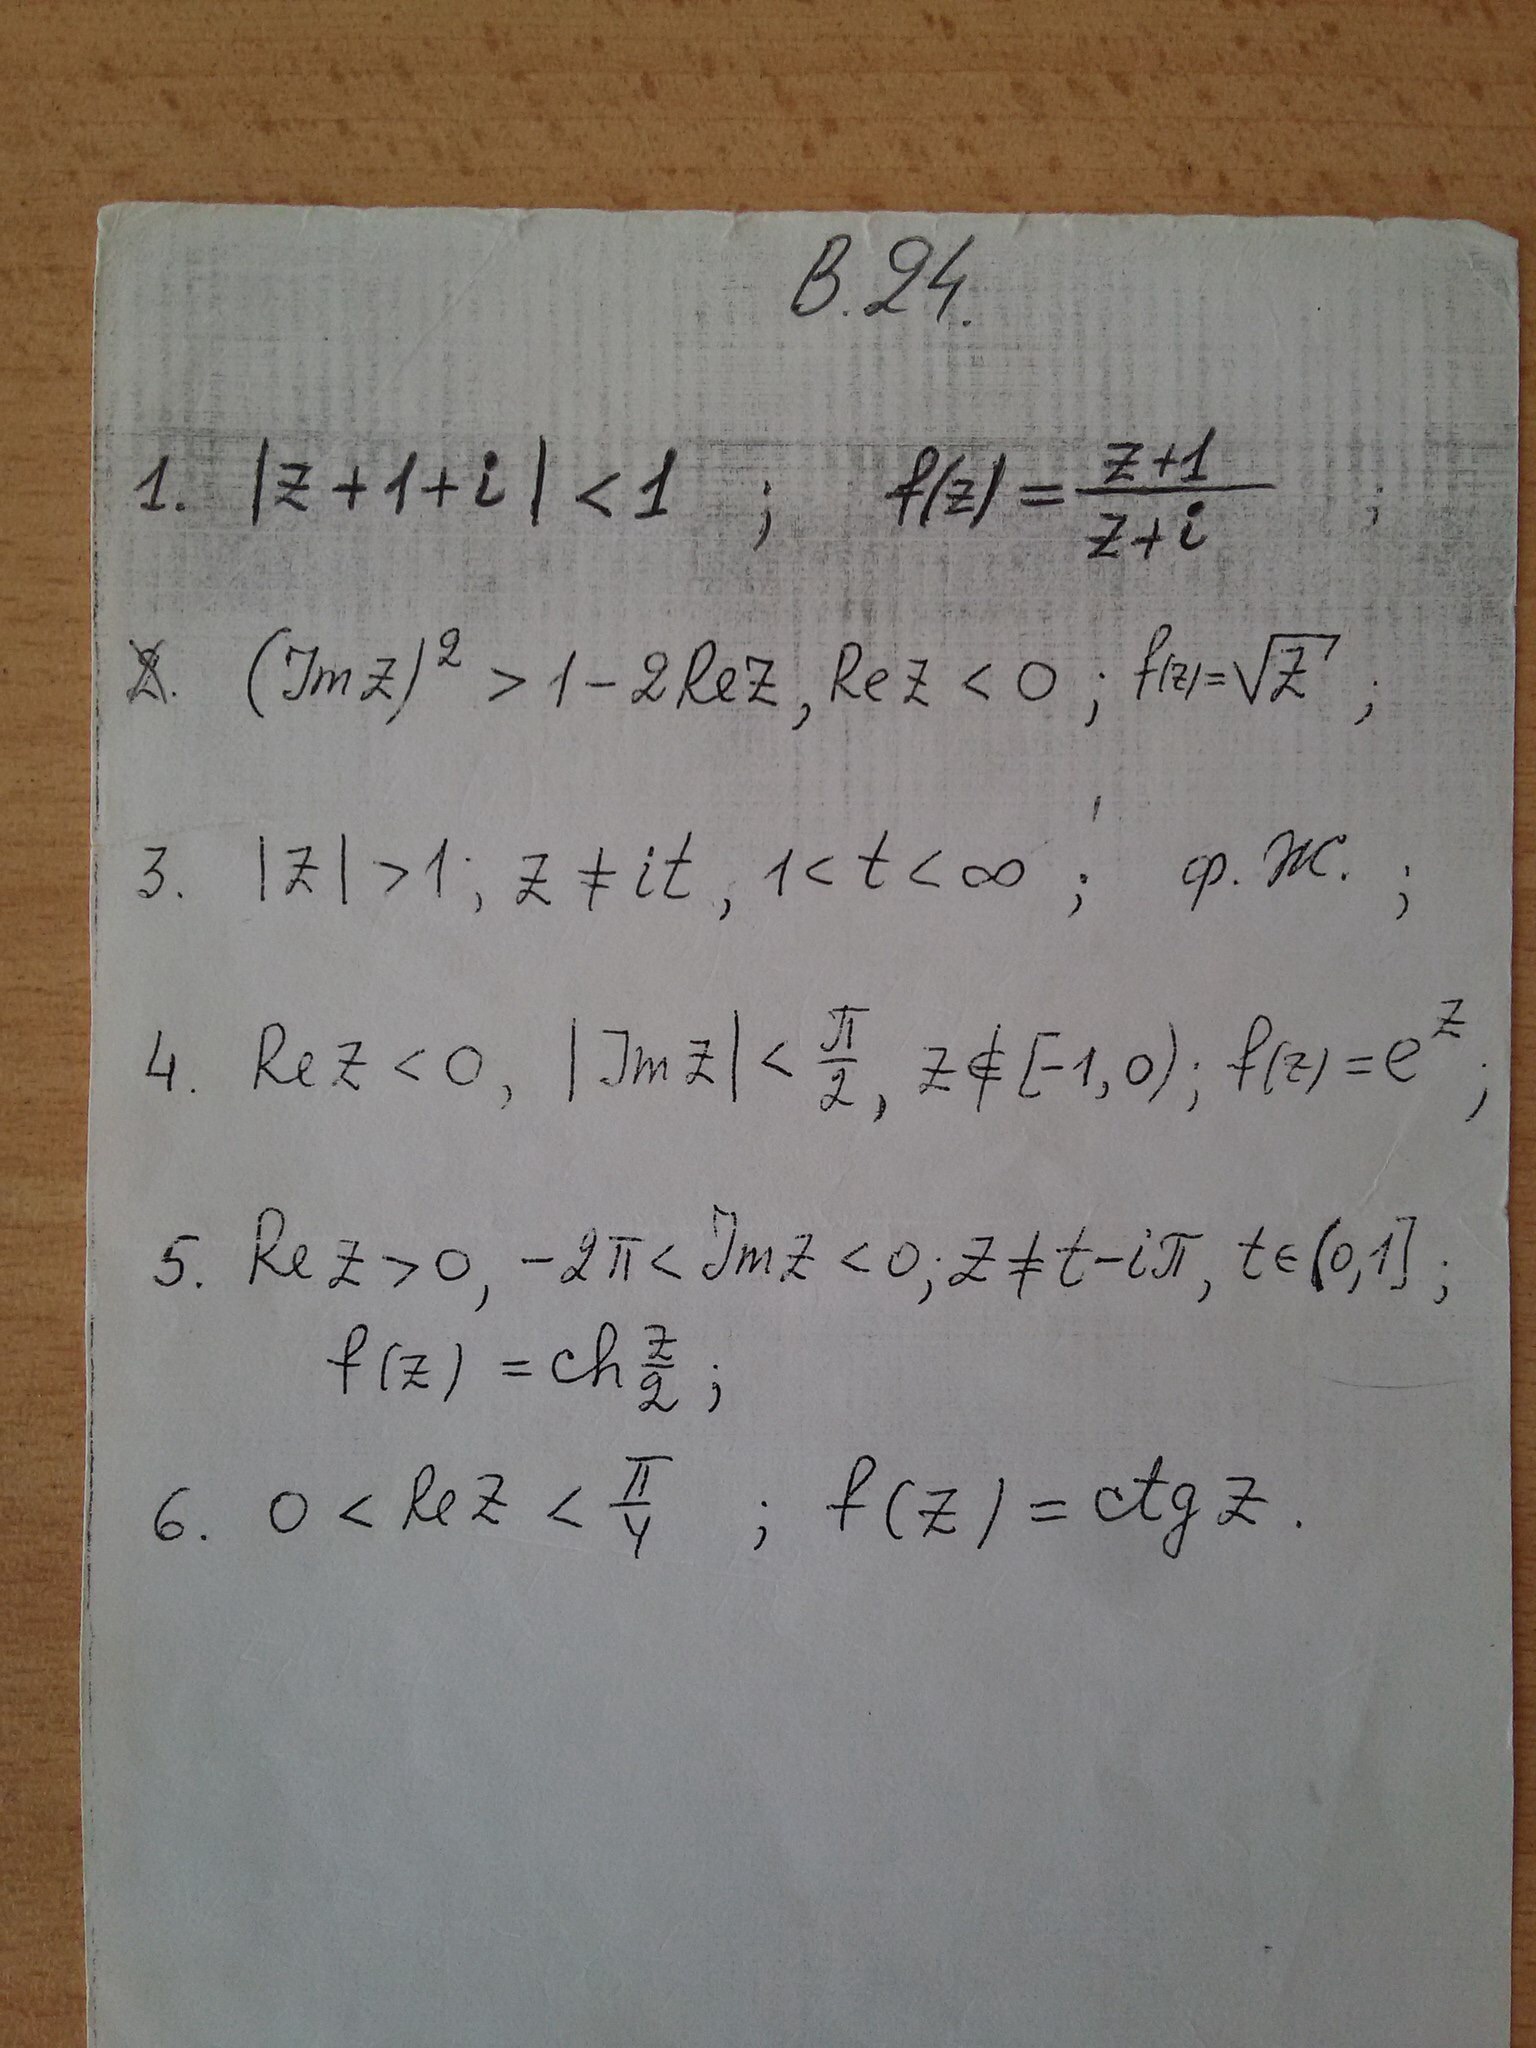 В.24.
1. |z+1+i| < 1 ; f(z) = \frac{z+1}{z+i} ;
2. (Im z)^2 > 1 - 2Re z, Re z < 0 ; f(z) = √z ;
3. |z| > 1; z ≠ it, 1 < t < ∞ ; ф. Ж. ;
4. Re z < 0, |Im z| < \frac{π}{2}, z ∉ [-1, 0); f(z) = e^z ;
5. Re z > 0, -2π < Im z < 0; z ≠ t - iπ, t ∈ (0,1] ;
f(z) = ch \frac{z}{2} ;
6. 0 < Re z < \frac{π}{4} ; f(z) = ctg z.